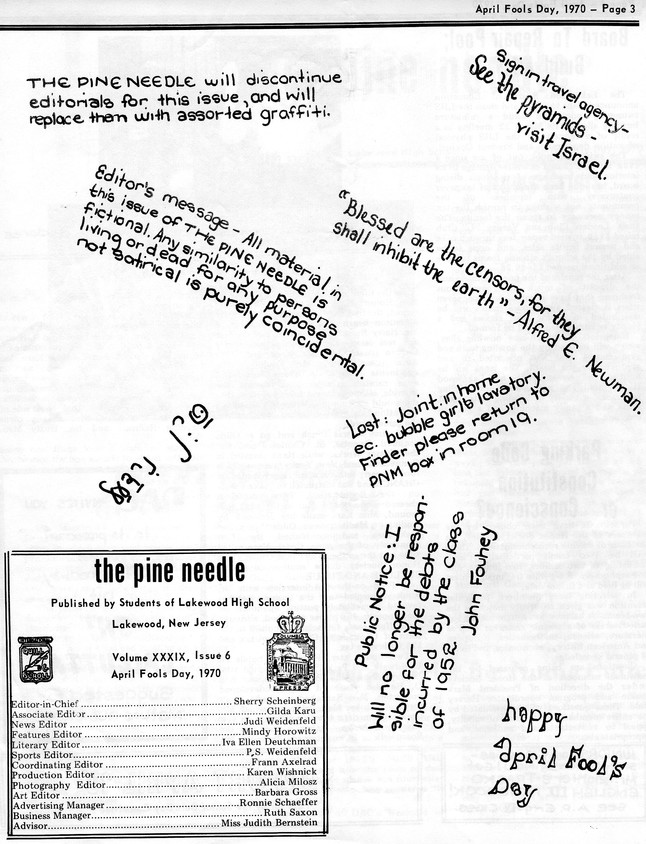 April Fools Day, 1970 – Page 3
THE PINE NEEDLE will discontinue
editorials for this issue, and will
replace them with assorted graffiti.
Sign in travel agency–
See the pyramids –
visit Israel.
Editor's message – All material in
this issue of THE PINE NEEDLE is
fictional. Any similarity to persons
living or dead for any purpose
not satirical is purely coincidental.
"Blessed are the censors, for they
shall inhibit the earth" – Alfred E. Newman.
Lost: Joint in home
ec. bubble girl's lavatory.
Finder please return to
PNM box in room 19.
Public Notice: I
will no longer be respon-
sible for the debts
incurred by the class
of 1952
John Fouhey
the pine needle
Published by Students of Lakewood High School
Lakewood, New Jersey
Volume XXXIX, Issue 6
April Fools Day, 1970
Editor-in-Chief Sherry Scheinberg
Associate Editor Gilda Karu
News Editor Judi Weidenfeld
Features Editor Mindy Horowitz
Literary Editor Iva Ellen Deutchman
Sports Editor P.S. Weidenfeld
Coordinating Editor Frann Axelrad
Production Editor Karen Wishnick
Photography Editor Alicia Milosz
Art Editor Barbara Gross
Advertising Manager Ronnie Schaeffer
Business Manager Ruth Saxon
Advisor Miss Judith Bernstein
happy
April Fool's
Day